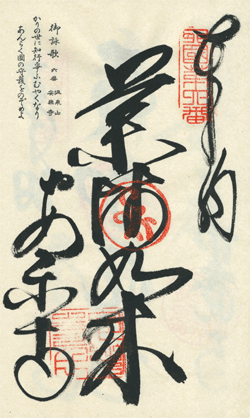 奉納
薬師如来
安楽寺
御詠歌
六番 温泉山 安楽寺
かりの世に知行争ふむやくなり
あんらく国の守護をのぞめよ